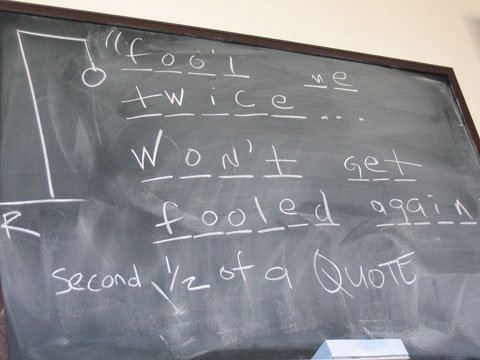 "fool me
twice...
Won't get
fooled again
R
second 1/2 of a QUOTE